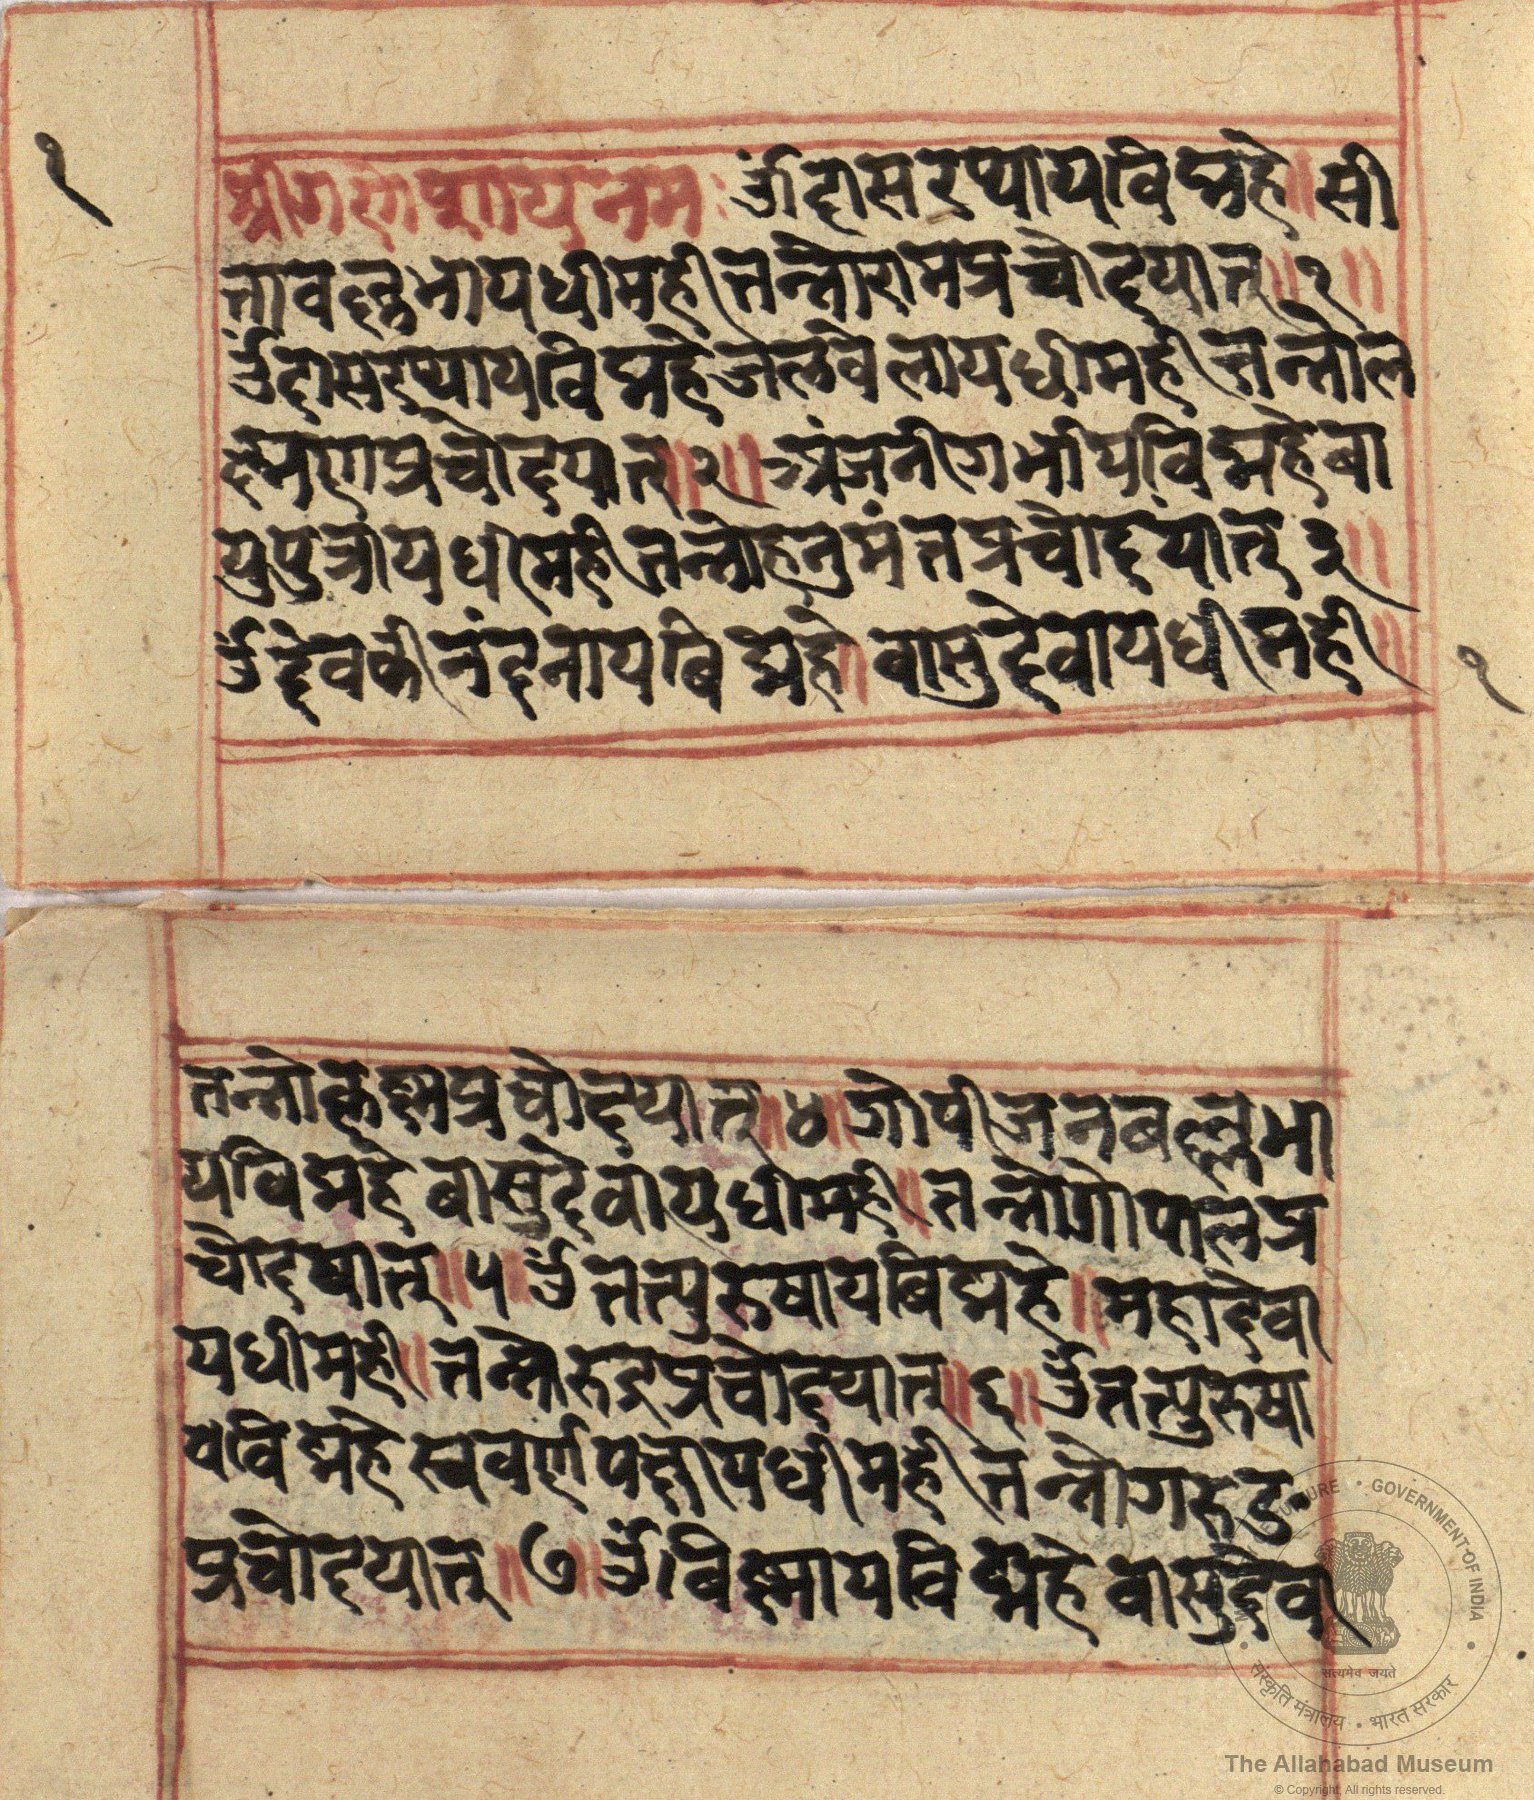 १
श्रीगणेशायनमः ॐ दासरथ्यायविद्महे ॥ सी
तावल्लभायधीमही तन्नोरामप्रचोदयात् ॥ १ ॥
ॐ दासरथ्यायविद्महे धीमही तन्नोल
क्ष्मणप्रचोदयात् ॥ २ ॥ अंजनीगर्भायविद्महे बा
युपुत्रायधीमही तन्नोहनुमंतप्रचोदयात् ३ ॥
ॐ देवकीनंदनायबिद्महे ॥ वासुदेवायधीमही ॥
१
तन्नोकृष्णप्रचोदयात् ॥ ४ ॥ गोपीजनबल्लभा
यविद्महे बासुदेवायधीमही ॥ तन्नोगोपालप्र
चोदयात् ॥ ५ ॥ ॐ तत्पुरुषायबिद्महे ॥ महादेवा
यधीमही ॥ तन्नोरुद्रप्रचोदयात् ॥ ६ ॥ ॐ तत्पुरुषा
यविद्महे स्ववर्णपक्षायधीमही तन्नोगरुड
प्रचोदयात् ॥ ७ ॥ ॐ बिष्णायविद्महे वासुदेवा
GOVERNMENT OF INDIA
सत्यमेव जयते
संस्कृति मंत्रालय • भारत सरकार
The Allahabad Museum
© Copyright, All rights reserved.